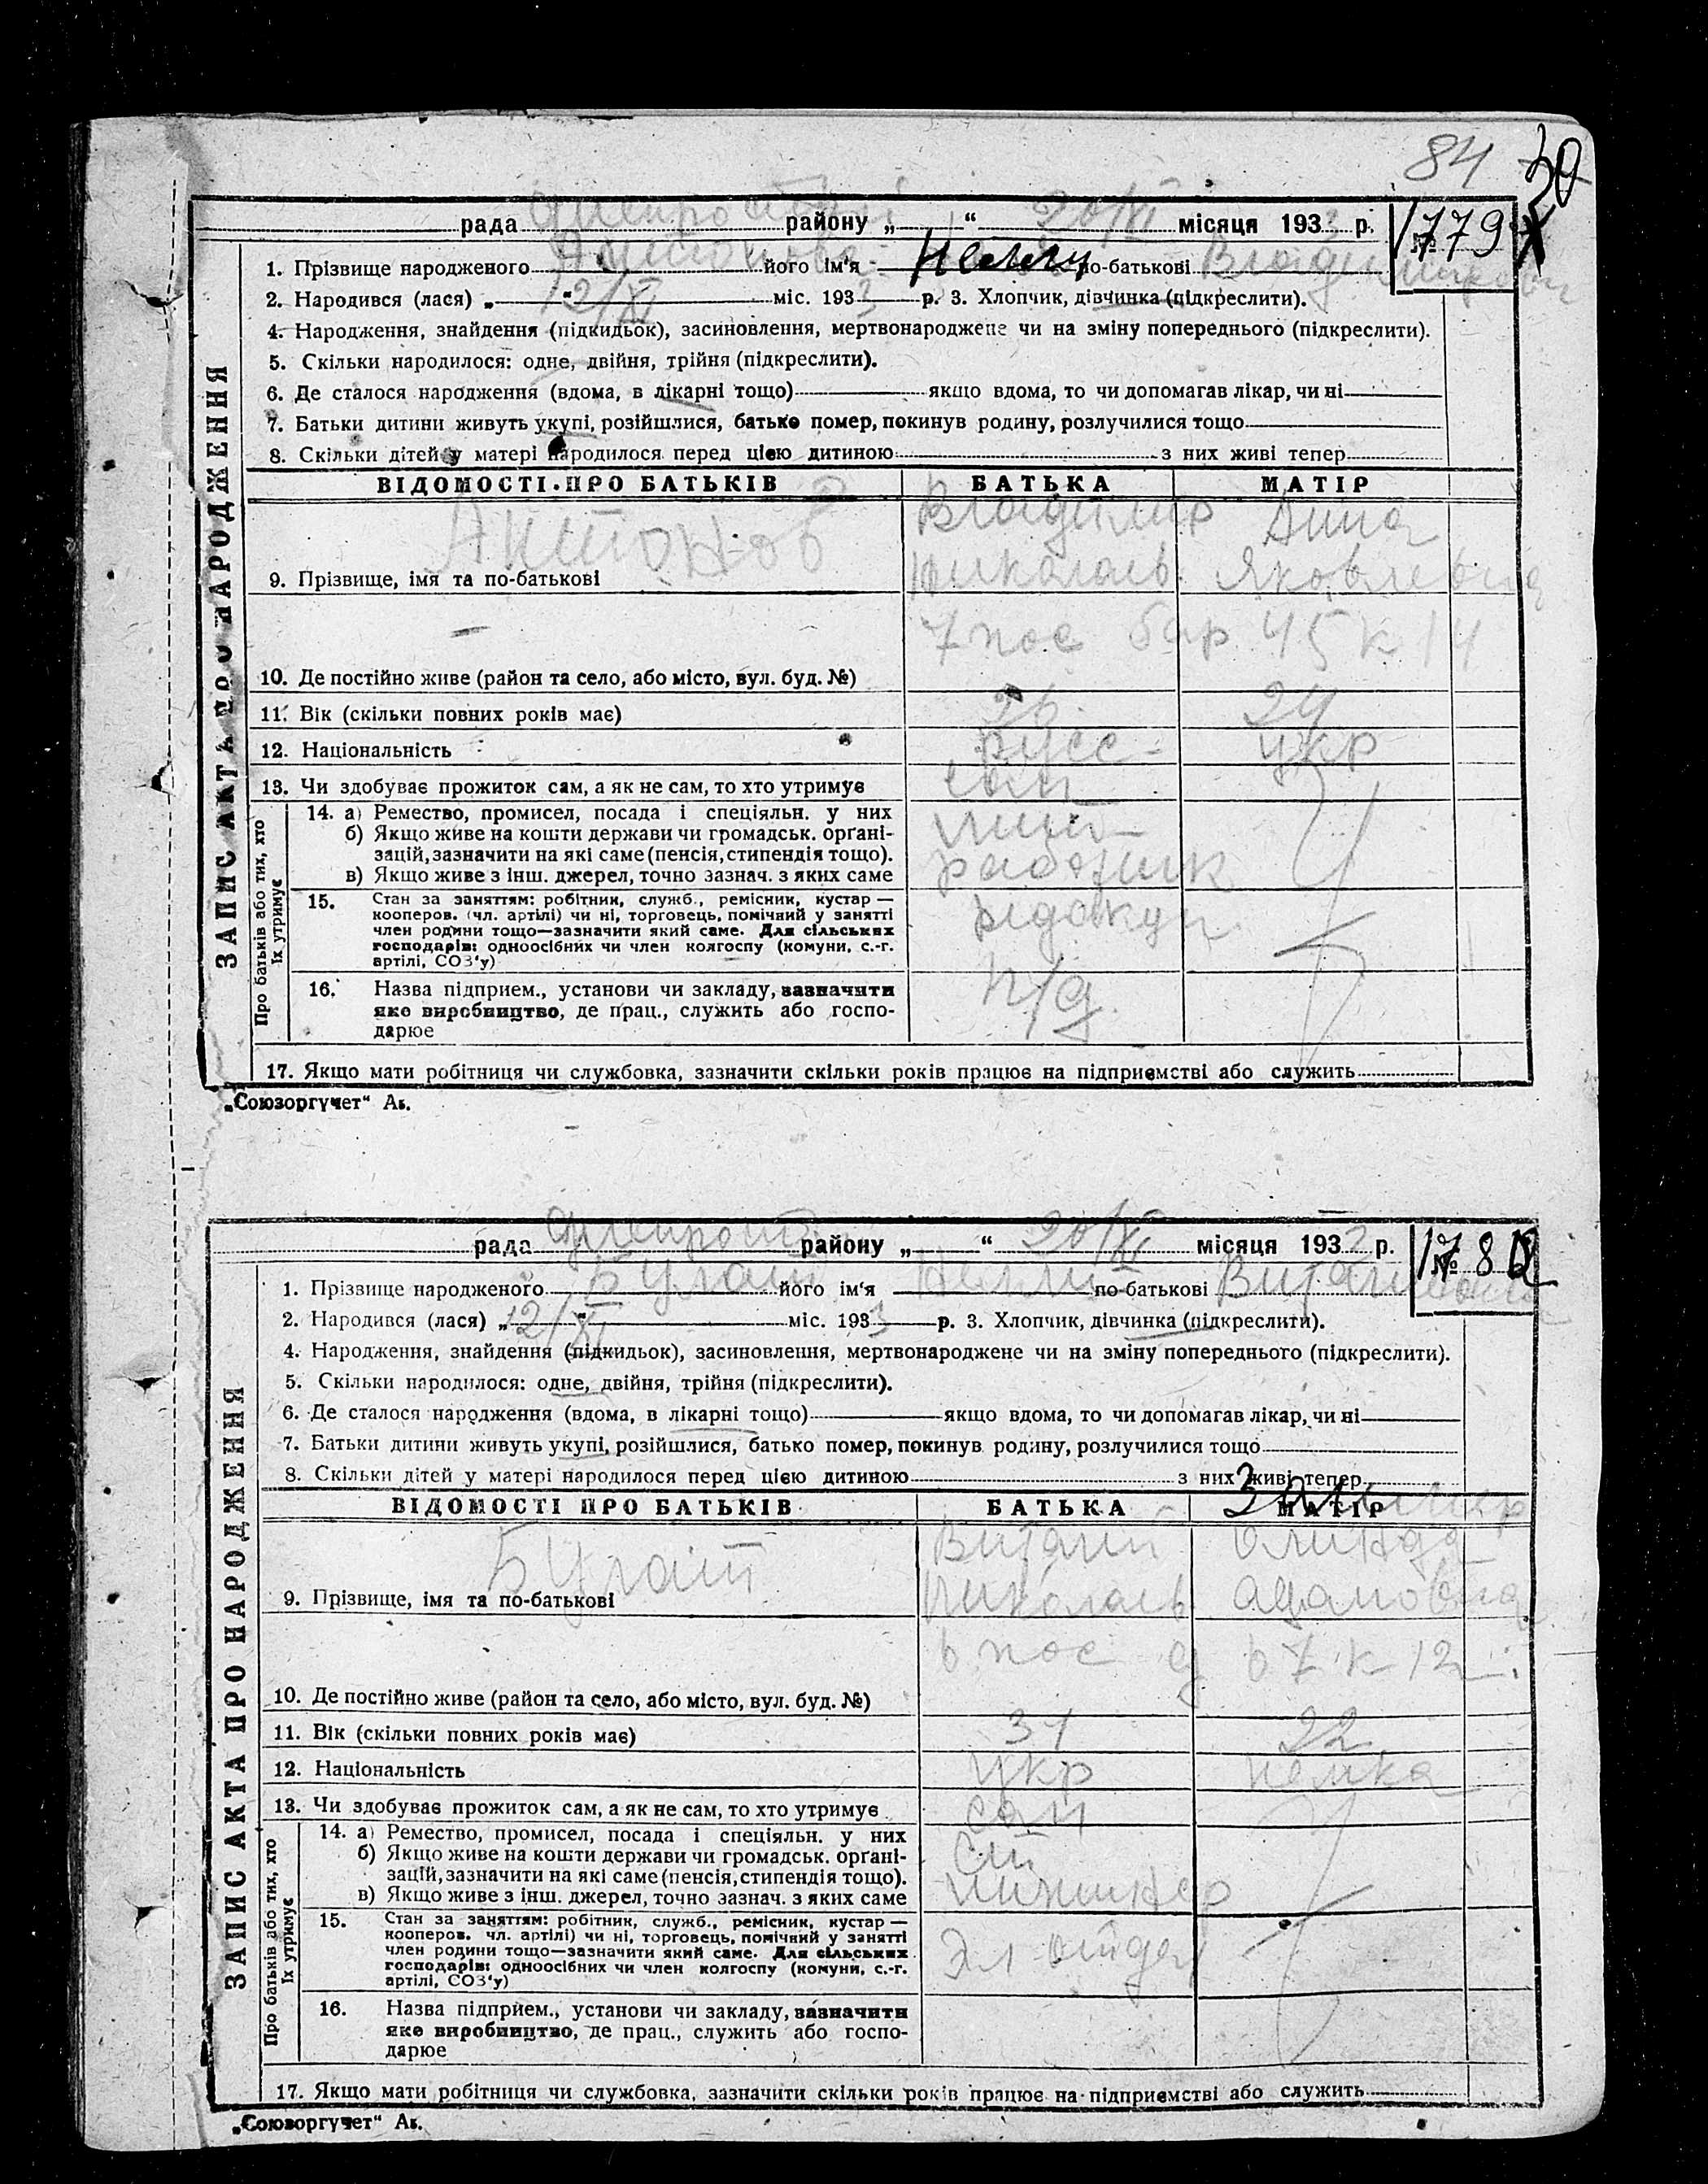 84 30
рада Днепро району „ “ 20/XI місяця 1933 р. № 1779
1. Прізвище народженого його ім‘я Нелли по-батькові Владимировн
2. Народився (лася) „ 12/XI міс. 1933 р. 3. Хлопчик, дівчинка (підкреслити).
4. Народження, знайдення (підкидьок), засиновлення, мертвонароджене чи на зміну попереднього (підкреслити).
5. Скільки народилося: одне, двійня, трійня (підкреслити).
6. Де сталося народження (вдома, в лікарні тощо) якщо вдома, то чи допомагав лікар, чи ні
7. Батьки дитини живуть укупі, розійшлися, батько помер, покинув родину, розлучилися тощо
8. Скільки дітей у матері народилося перед цією дитиною з них живі тепер
ЗАПИС АКТА ПРО НАРОДЖЕННЯ
ВІДОМОСТІ ПРО БАТЬКІВ БАТЬКА МАТІР
Владимир Анна
9. Прізвище, імя та по-батькові Николаев Яковлевна
7 пос бар 45 к 14
10. Де постійно живе (район та село, або місто, вул. буд. №)
11. Вік (скільки повних років має) 26 24
12. Національність русс укр
13. Чи здобуває прожиток сам, а як не сам, то хто утримує сам
Про батьків або тих, хто
їх утримує
14. а) Ремество, промисел, посада і спеціяльн. у них
б) Якщо живе на кошти держави чи громадськ. орґані-
зацій, зазначити на які саме (пенсія, стипендія тощо).
в) Якщо живе з інш. джерел, точно зазнач. з яких саме
15. Стан за заняттям: робітник, служб., ремісник, кустар —
кооперов. (чл. артілі) чи ні, торговець, помічний у занятті
член родини тощо—зазначити який саме. Для сільських
господарів: одноосібних чи член колгоспу (комуни, с.-г.
артілі, СОЗ‘у)
16. Назва підприєм., установи чи закладу, зазначити
яке виробництво, де прац., служить або госпо-
дарює
17. Якщо мати робітниця чи службовка, зазначити скільки років працює на підприємстві або служить
„Союзоргучет“ Аг.
рада Днепро району „ “ 20/XI місяця 193 р. № 1780
1. Прізвище народженого Булат його ім‘я Нелли по-батькові Витальевна
2. Народився (лася) „ 12/XI міс. 1933 р. 3. Хлопчик, дівчинка (підкреслити).
4. Народження, знайдення (підкидьок), засиновлення, мертвонароджене чи на зміну попереднього (підкреслити).
5. Скільки народилося: одне, двійня, трійня (підкреслити).
6. Де сталося народження (вдома, в лікарні тощо) якщо вдома, то чи допомагав лікар, чи ні
7. Батьки дитини живуть укупі, розійшлися, батько помер, покинув родину, розлучилися тощо
8. Скільки дітей у матері народилося перед цією дитиною з них живі тепер
ЗАПИС АКТА ПРО НАРОДЖЕННЯ
ВІДОМОСТІ ПРО БАТЬКІВ БАТЬКА МАТІР
Булат Виталий
9. Прізвище, імя та по-батькові Николаев Адамовна
6 пос д 67 к 12
10. Де постійно живе (район та село, або місто, вул. буд. №)
11. Вік (скільки повних років має) 31 22
12. Національність укр немка
13. Чи здобуває прожиток сам, а як не сам, то хто утримує сам
Про батьків або тих, хто
їх утримує
14. а) Ремество, промисел, посада і спеціяльн. у них
б) Якщо живе на кошти держави чи громадськ. орґані- ст
зацій, зазначити на які саме (пенсія, стипендія тощо).
в) Якщо живе з інш. джерел, точно зазнач. з яких саме инженер
15. Стан за заняттям: робітник, служб., ремісник, кустар —
кооперов. чл. артілі) чи ні, торговець, помічний у занятті
член родини тощо—зазначити який саме. Для сільських
господарів: одноосібних чи член колгоспу (комуни, с.-г.
артілі, СОЗ‘у)
16. Назва підприєм., установи чи закладу, зазначити
яке виробництво, де прац., служить або госпо-
дарює
17. Якщо мати робітниця чи службовка, зазначити скільки років працює на підприємстві або служить
„Союзоргучет“ Аг.